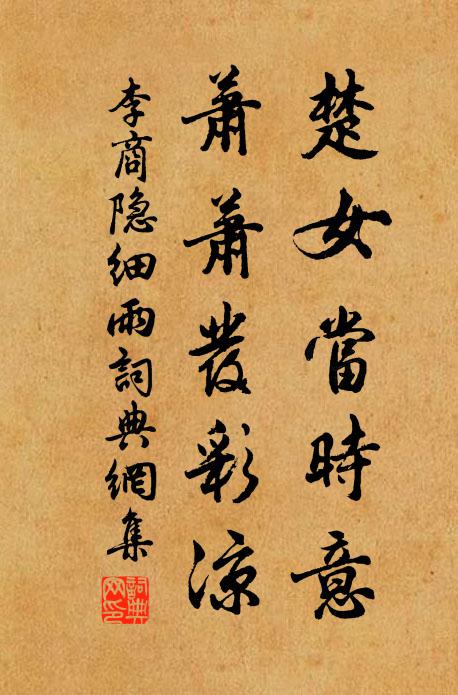 楚女當時意
蕭蕭發彩涼
李商隐細雨詞典網集
詞典網印